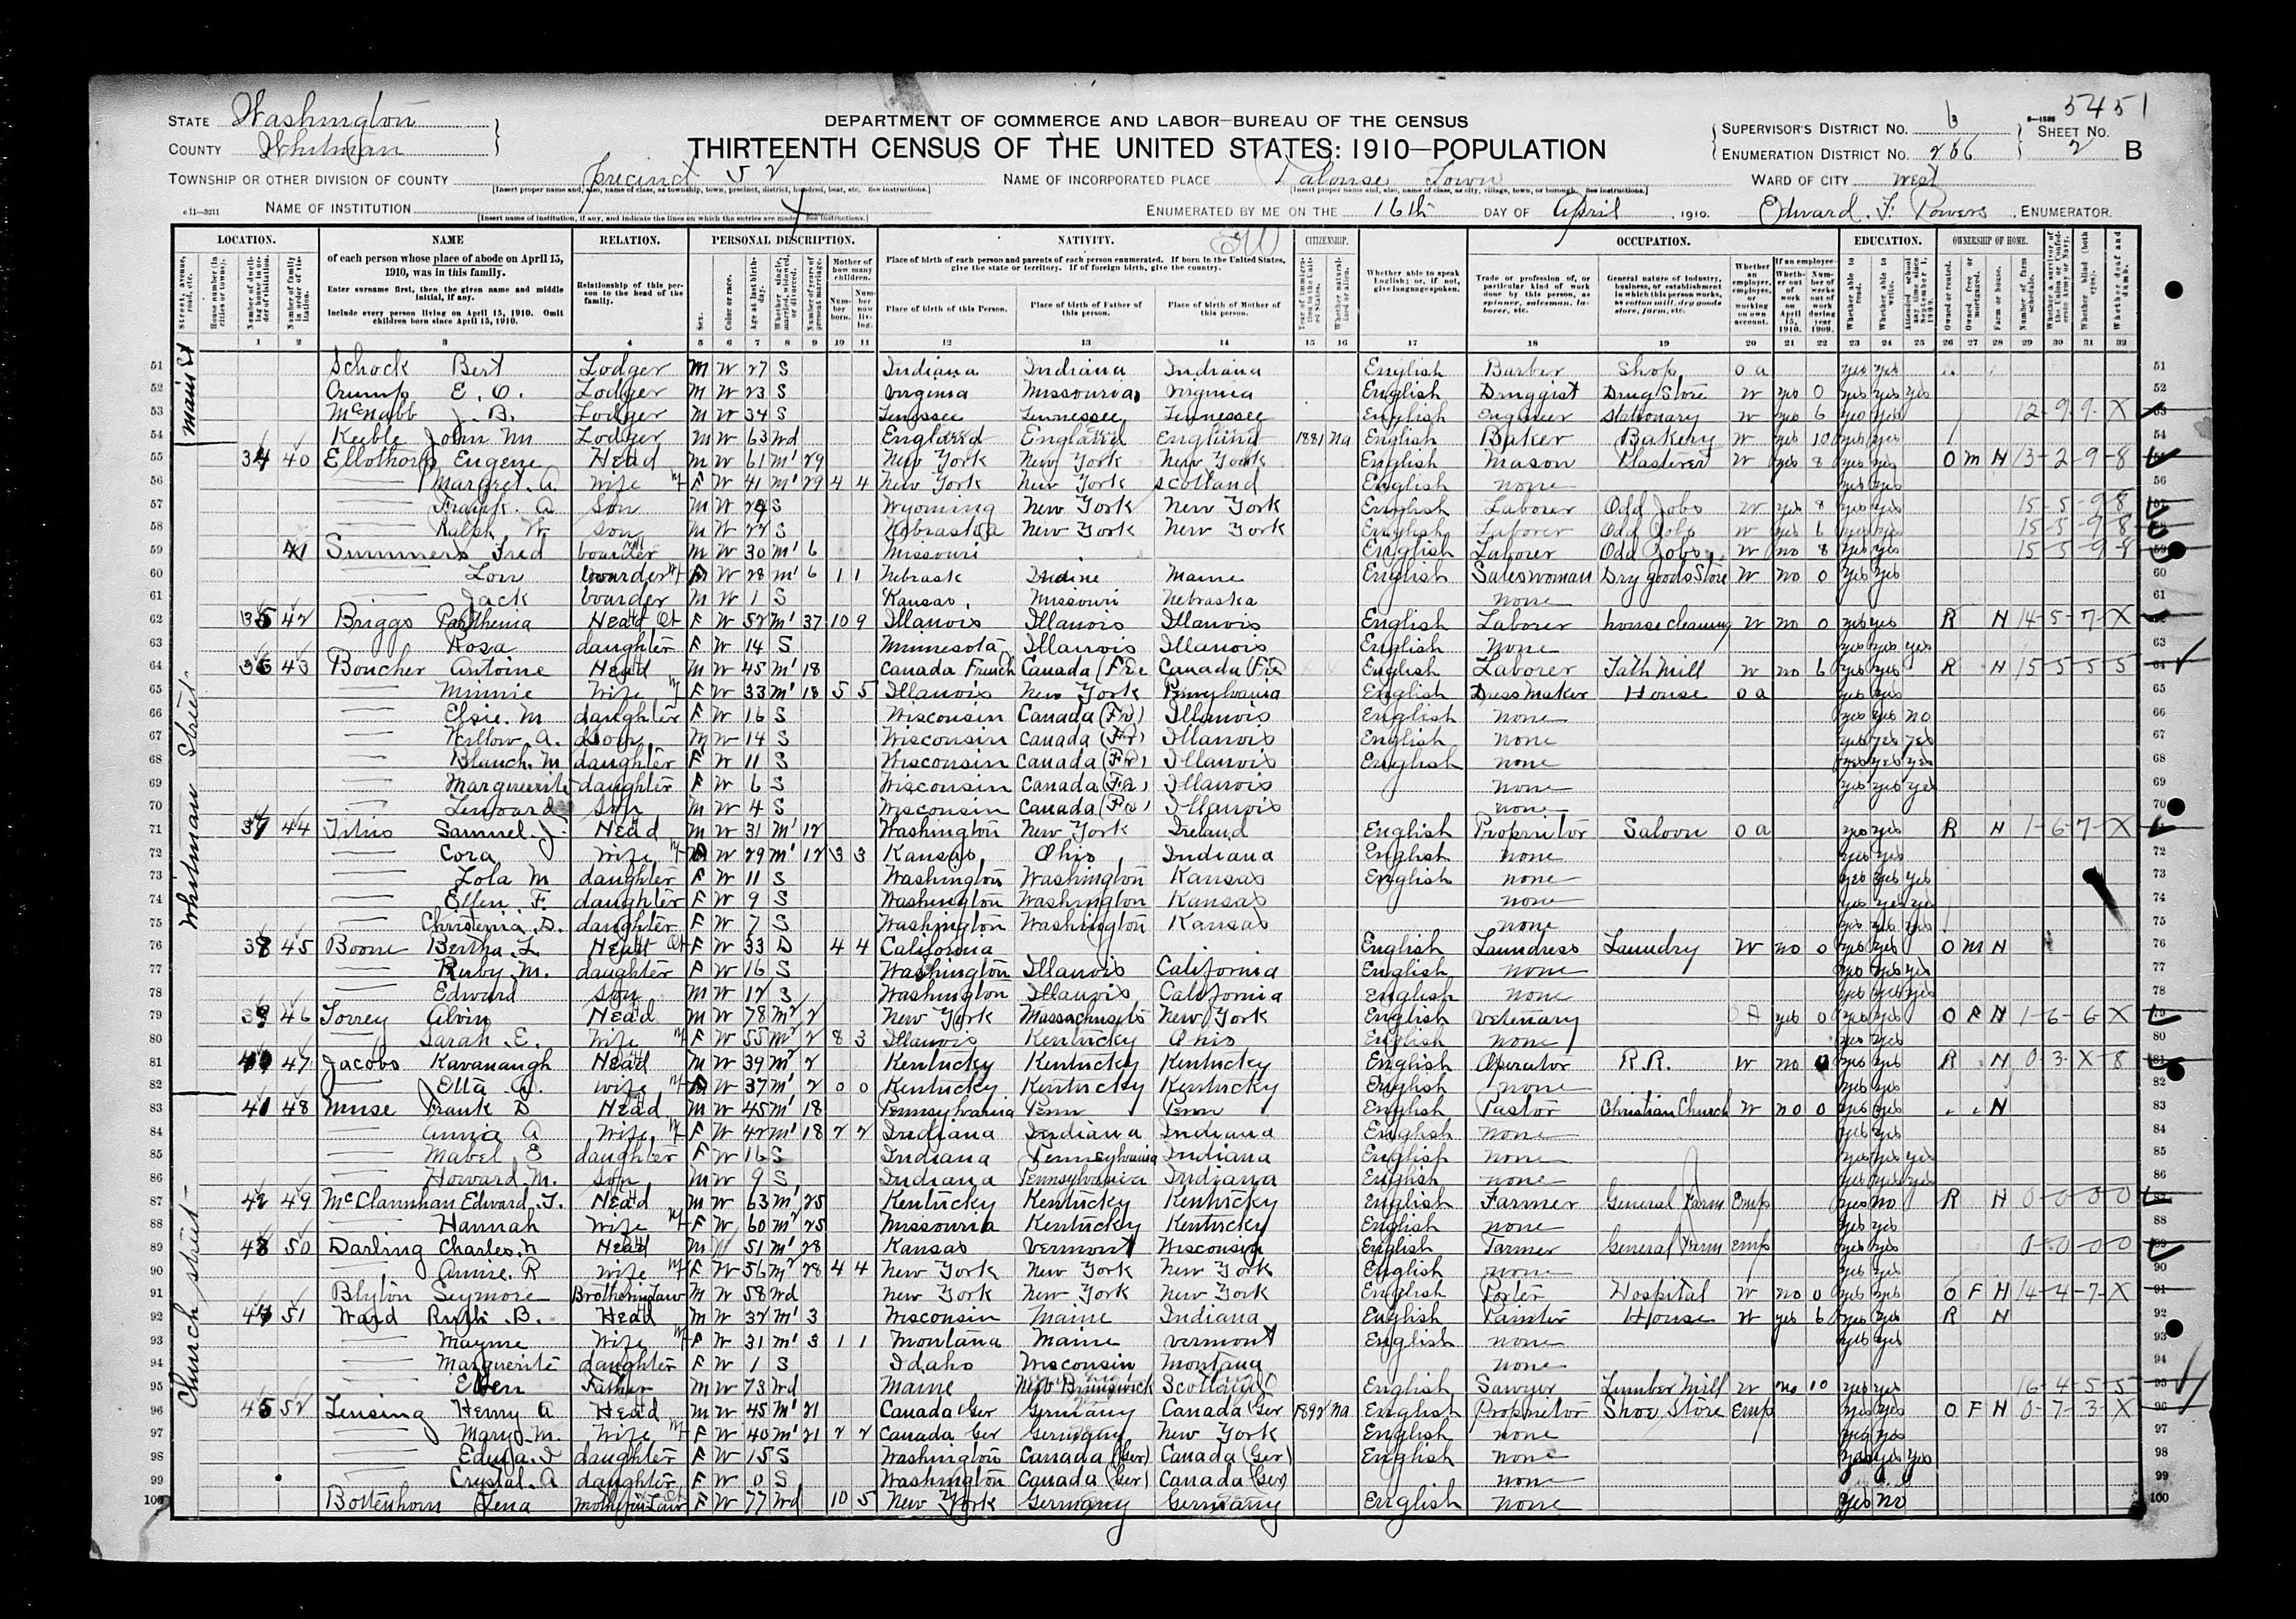 5451
STATE Washington
COUNTY Whitman
DEPARTMENT OF COMMERCE AND LABOR—BUREAU OF THE CENSUS
THIRTEENTH CENSUS OF THE UNITED STATES: 1910—POPULATION
SUPERVISOR'S DISTRICT NO. 6
ENUMERATION DISTRICT NO. 266
SHEET NO. 2 B
TOWNSHIP OR OTHER DIVISION OF COUNTY Precinct 52
NAME OF INCORPORATED PLACE Palouse Town
WARD OF CITY West
NAME OF INSTITUTION X
ENUMERATED BY ME ON THE 16th DAY OF April, 1910. Edward F. Powers, ENUMERATOR.
LOCATION. NAME RELATION. PERSONAL DESCRIPTION. NATIVITY. CITIZENSHIP. OCCUPATION. EDUCATION. OWNERSHIP OF HOME.
of each person whose place of abode on April 15, 1910, was in this family.
Enter surname first, then the given name and middle initial, if any.
Include every person living on April 15, 1910. Omit children born since April 15, 1910.
Relationship of this person to the head of the family.
Place of birth of each person and parents of each person enumerated. If born in the United States, give the state or territory. If of foreign birth, give the country.
Place of birth of this Person. Place of birth of Father of this person. Place of birth of Mother of this person.
Whether able to speak English; or, if not, give language spoken.
1 2 3 4 5 6 7 8 9 10 11 12 13 14 15 16 17 18 19 20 21 22 23 24 25 26 27 28 29 30 31 32
Main St
51 Schock Bert Lodger M W 27 S Indiana Indiana Indiana English Barber Shop O a yes yes
52 Crump E. O. Lodger M W 23 S Virginia Missouria Virginia English Druggist Drug Store W yes 0 yes yes yes
53 McNabb J. B. Lodger M W 34 S Tenessee Tennessee Tennessee English Engineer Stationary W yes 6 yes yes 12-9-9-X
54 Keeble John M Lodger M W 63 Wd England England England 1881 Na English Baker Bakery W yes 10 yes yes
Whitman Street
55 34 40 Ellothorp Eugene Head M W 61 M1 29 New York New York New York English Mason Plasterer W yes 8 yes yes O M H 13-2-9-8
56 Margret. A Wife F W 41 M1 29 4 4 New York New York Scotland English none yes yes
57 Frank. A Son M W 24 S Wyoming New York New York English Laborer Odd Jobs W yes 8 yes yes 15-5-9-8
58 Ralph W. Son M W 22 S Nebraska New York New York English Laborer Odd Jobs W yes 6 yes yes 15-5-9-8
59 41 Summers Fred boarder M W 30 M1 6 Missouri English Laborer Odd Jobs W no 8 yes yes 15-5-9-8
60 Lou boarder F W 28 M1 6 1 1 Nebrask Indine Maine English Saleswoman Dry goods Store W no 0 yes yes
61 Jack boarder M W 1 S Kansas Missouri Nebraska none
62 35 42 Briggs Head F W 52 M1 37 10 9 Illanois Illanois Illanois English Laborer house cleaning W no 0 yes yes R H 14-5-7-X
63 Rosa daughter F W 14 S Minnesota Illanois Illanois English None yes yes yes
64 36 43 Boucher Antoine Head M W 45 M1 18 Canada French Canada (Fre Canada (Fre English Laborer Lath Mill W no 6 yes yes R H 15-5-5-5
65 Minnie Wife F W 33 M1 18 5 5 Illanois New York Pennsylvania English Dress Maker House O a yes yes
66 Elsie. M daughter F W 16 S Wisconsin Canada (Fr) Illanois English none yes yes no
67 Willow. A. Son M W 14 S Wisconsin Canada (Fr) Illanois English none yes yes yes
68 Blanch. M daughter F W 11 S Wisconsin Canada (Fr) Illanois English none yes yes yes
69 Marguerite daughter F W 6 S Wisconsin Canada (Fr) Illanois none yes yes yes
70 Lenoard Son M W 4 S Wisconsin Canada (Fr) Illanois none
71 37 44 Titus Samuel J. Head M W 31 M1 12 Washington New York Ireland English Proprietor Saloon O a yes yes R H 1-6-7-X
72 Cora Wife F W 29 M1 12 3 3 Kansas Ohio Indiana English none yes yes
73 Lola M daughter F W 11 S Washington Washington Kansas English none yes yes yes
74 Ellen F. daughter F W 9 S Washington Washington Kansas none yes yes yes
75 Christinia. D. daughter F W 7 S Washington Washington Kansas none yes yes yes
76 38 45 Boone Bertha. L. Head F W 33 D 4 4 California English Laundress Laundry W no 0 yes yes O M H
77 Ruby. M. daughter F W 16 S Washington Illanois California English none yes yes yes
78 Edward Son M W 12 S Washington Illanois California English none yes yes yes
79 39 46 Torrey Alvin Head M W 78 M2 2 New York Massachusets New York English Vetenary O A yes 0 yes yes O F H 1-6-6-X
80 Sarah E. Wife F W 55 M2 2 8 3 Illanois Kentucky Ohio English none yes yes
81 40 47 Jacobs Kavanaugh Head M W 39 M2 2 Kentucky Kentucky Kentucky English Operator R.R. W no 0 yes yes R H 0-3-X-8
82 Etta Wife F W 37 M1 2 0 0 Kentucky Kentucky Kentucky English none yes yes
Church street
83 41 48 Muse Frank D Head M W 45 M1 18 Pennsylvania Penn Penn English Pastor Christian Church W no 0 yes yes H
84 Annia A Wife F W 42 M1 18 2 2 Indiana Indiana Indiana English none yes yes
85 Mabel E daughter F W 16 S Indiana Pennsylvania Indiana English none yes yes yes
86 Howard. M. Son M W 9 S Indiana Pennsylvania Indiana English none yes yes yes
87 42 49 McClannhan Edward. T. Head M W 63 M1 25 Kentucky Kentucky Kentucky English Farmer General Farm Emp yes no R H 0-0-0-0
88 Hannah Wife F W 60 M2 25 Missouria Kentucky Kentucky English none yes yes
89 43 50 Darling Charles. N Head M W 51 M1 28 Kansas Vermont Wisconsin English Farmer General Farm Emp yes yes 0-0-0-0
90 Annie. R Wife F W 56 M2 28 4 4 New York New York New York English none yes yes
91 Blyton Seymore Brother in Law M W 58 Wd New York New York New York English Porter Hospital W no 0 yes yes O F H 14-4-7-X
92 44 51 Ward B. Head M W 32 M1 3 Wisconsin Maine Indiana English Painter House W yes 6 yes yes R H
93 Mayme Wife F W 31 M1 3 1 1 Montana Maine Vermont English none yes yes
94 Marguerite daughter F W 1 S Idaho Wisconsin Montana none
95 Father M W 73 Wd Maine New Brunswick Scotland English Sawyer Lumber Mill W no 10 yes yes 16-4-5-5
96 45 52 Lensing Henry A Head M W 45 M1 21 Canada Ger Germany Canada Ger 1892 Na English Proprietor Shoe Store Emp yes yes O F H 0-7-3-X
97 Mary. M. Wife F W 40 M1 21 2 2 Canada Ger Germany New York English none yes yes
98 Edna. I daughter F W 15 S Washington Canada (Ger) Canada (Ger) English none yes yes yes
99 Crystal. A daughter F W 0 S Washington Canada (Ger) Canada (Ger) none
100 Bottenhorn Lena Mother in Law F W 77 Wd 10 5 New York Germany Germany English none yes no